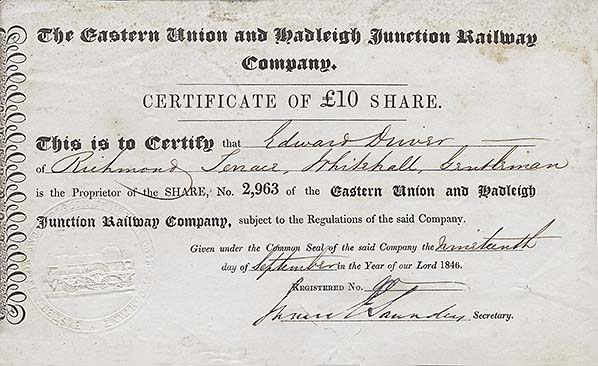 The Eastern Union and Hadleigh Junction Railway
Company.
CERTIFICATE OF £10 SHARE.
This is to Certify that Edward Driver
of Richmond Terrace, Whitehall, Gentleman
is the Proprietor of the SHARE, No. 2,963 of the Eastern Union and Hadleigh
Junction Railway Company, subject to the Regulations of the said Company.
Given under the Common Seal of the said Company the nineteenth
day of September in the Year of our Lord 1846.
REGISTERED No.
Saunders Secretary.